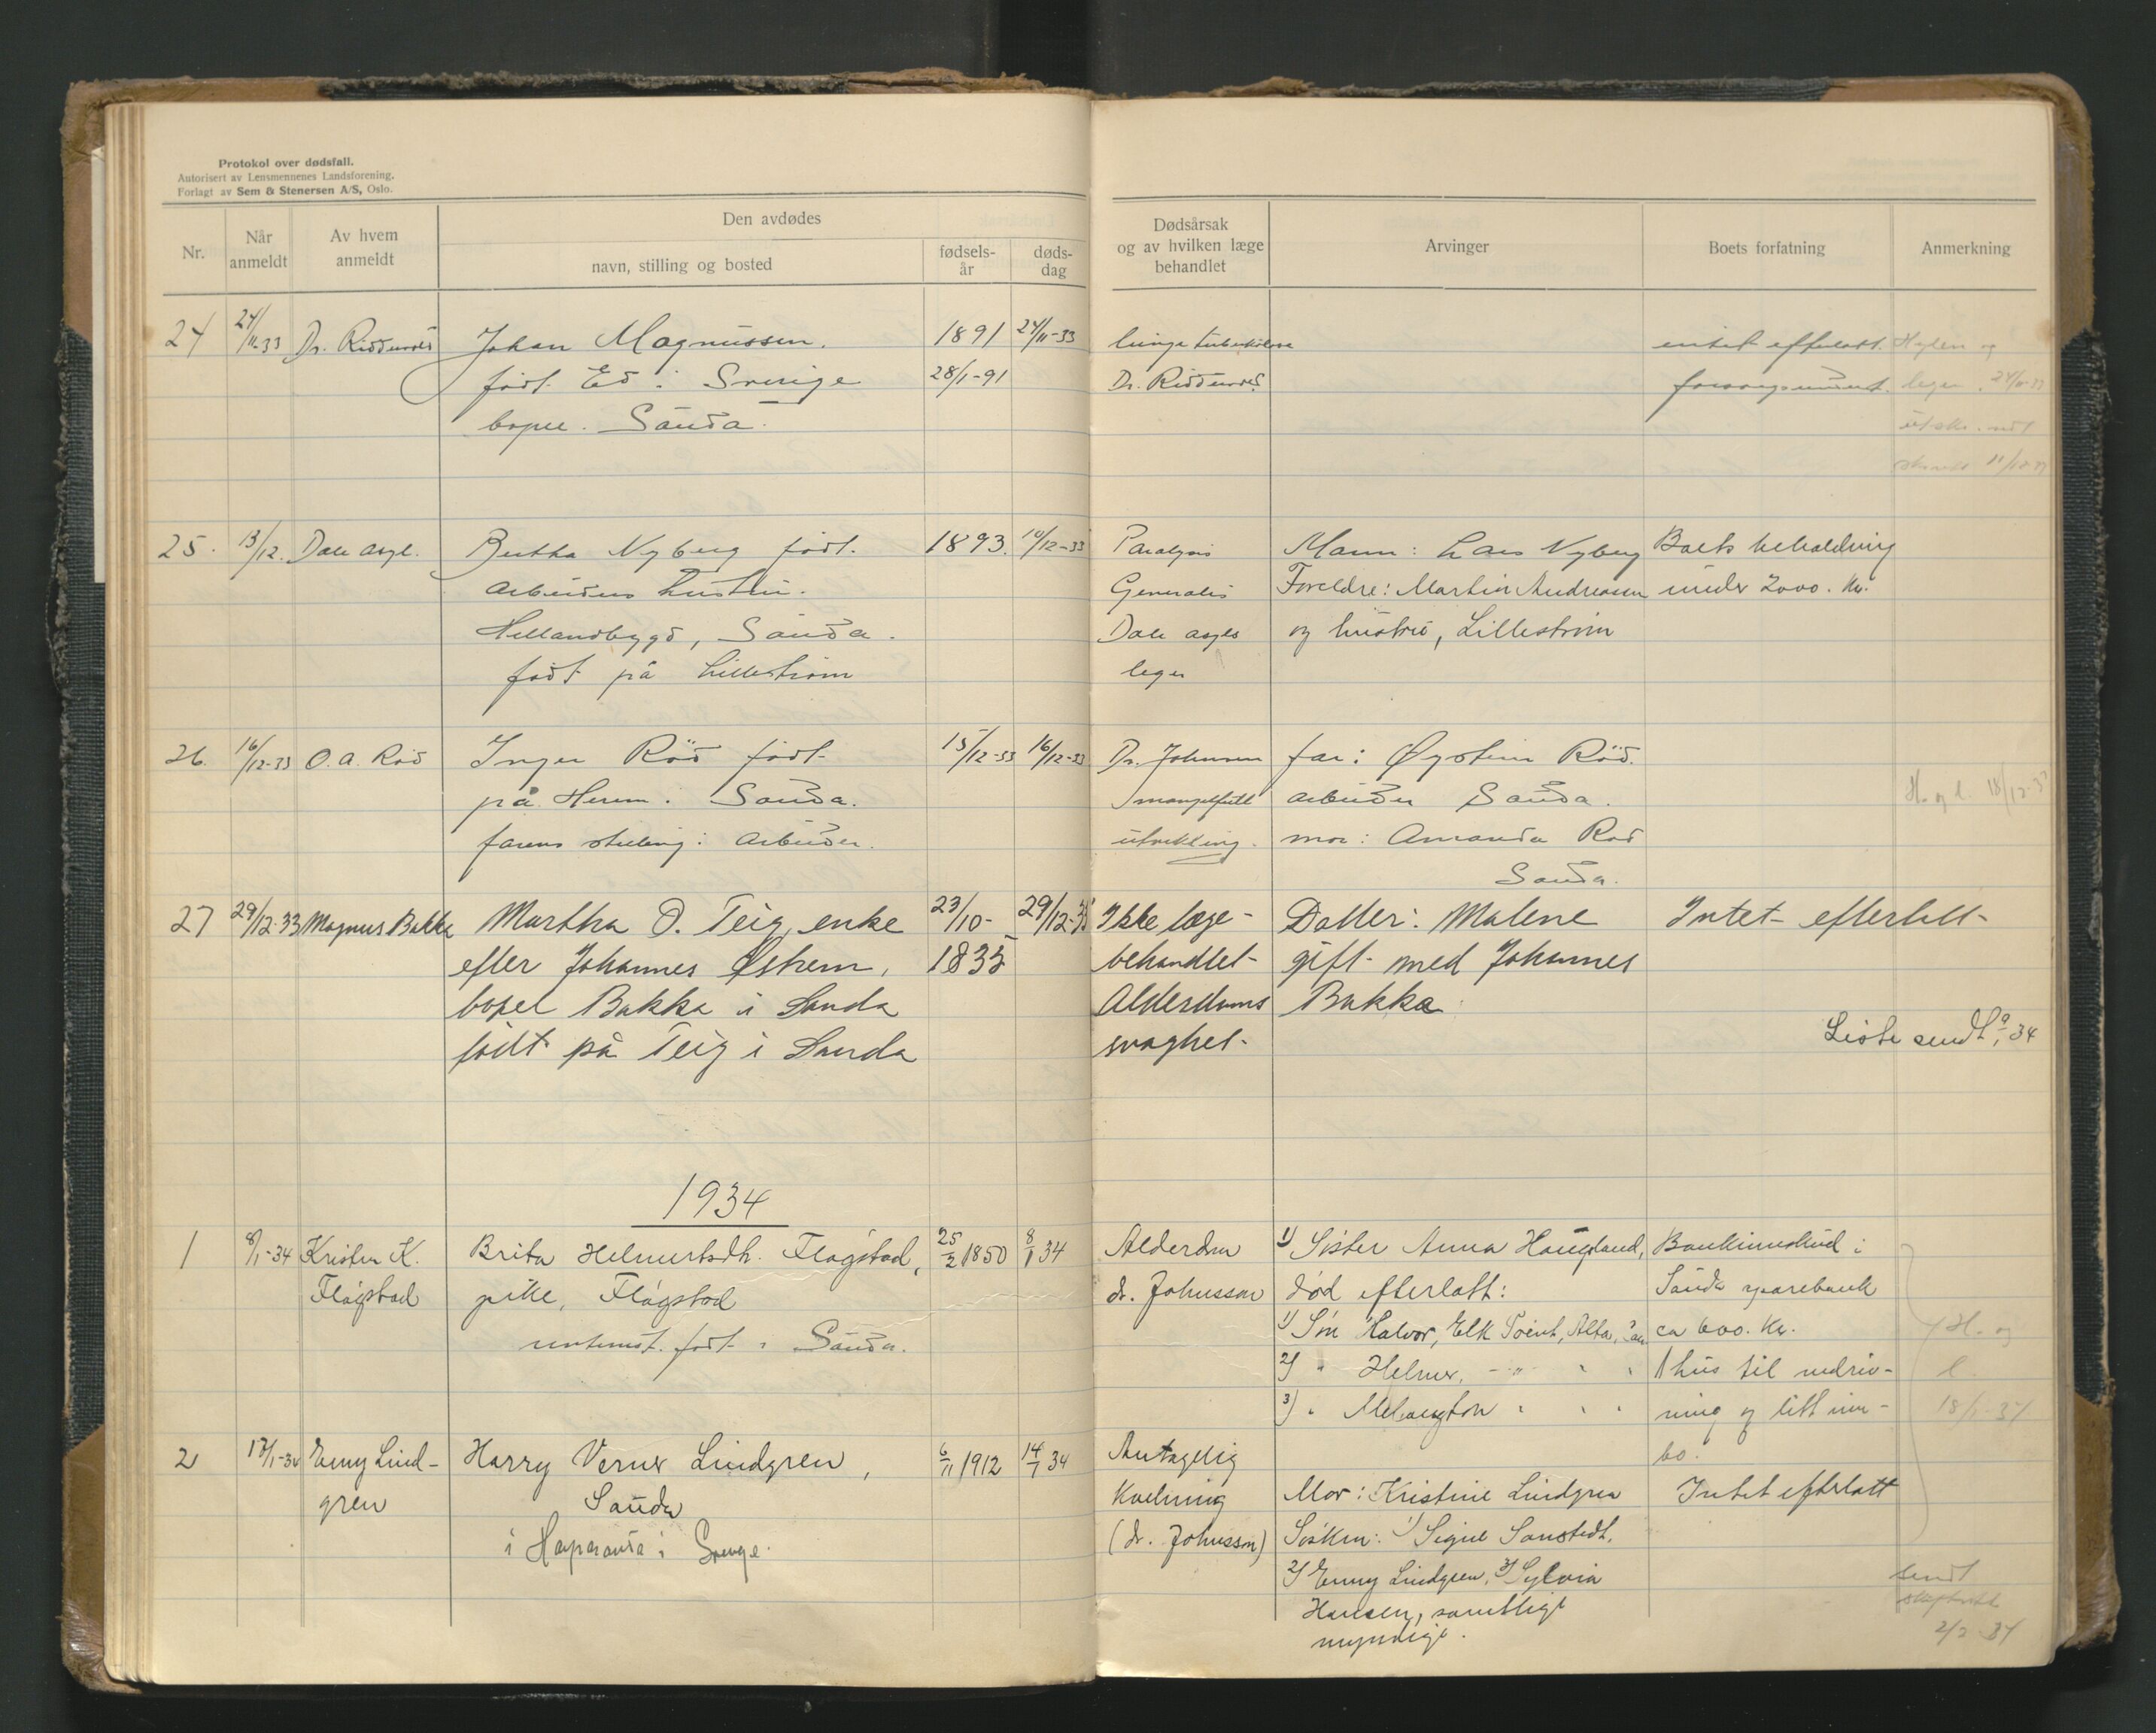 Protokol over dødsfall.
Autorisert av Lensmennenes Landsforening.
Forlagt av Sem & Stenersen A/S, Oslo.
Nr.
Når anmeldt
Av hvem anmeldt
Den avdødes
navn, stilling og bosted
fødsels-år
døds-dag
Dødsårsak og av hvilken læge behandlet
Arvinger
Boets forfatning
Anmerkning
24 24/11-33 Dr. Riddervold Johan Magnussen. 1891 24/11-33 lungetuberkulose
født Ed i Sverige 28/1-91 Dr. Riddervold
bopel. Sauda.
intet efterlatt. H og
leger 24/11-33
11/12-33
25. 13/12. Dale asyl. Bertha Nyberg født. 1893. 10/12-33 Paralysis Mann: Lars Nyberg Boets beholdning
arbeiders hustru. Generalis Foreldre: Martin Andreasen under 2000. kr.
Hellandbygd, Sauda. Dale asyls og hustru, Lillestrøm
født på Lillestrøm leger
26. 16/12-33 O. A. Röd Inger Röd født 15/12-33 16/12-33 Dr. Johnsson far: Øystein Röd.
på Herem. Sauda. mangelfull arbeider Sauda. H. og l. 18/12-33
farens stilling: arbeider. utvikling. mor: Amanda Röd
Sauda.
27 29/12-33 Magnus Bakka Martha O. Teig, enke 23/10- 29/12-33 Ikke læge- Datter: Malene Intet efterlatt
efter Johannes Østrem, 1835 behandlet gift med Johannes
bopel Bakka i Sauda Alderdoms Bakka
født på Teig i Sauda svaghet
Liste sendt 9/1 34
1934
1 8/1-34 Kristen K. Flågstad
Brita Helmertsdtr. Flågstad, 25/2 1850 8/1 34
pike, Flågstad
født i Sauda.
Alderdom
dr. Johnsson
1) Søster Anna Haugland,
død efterlatt:
1) Søn Halvor, Elk Point, Alta, Can
2) " Helmer, - " - " "
3) " Melvington " " "
Bankinnskud i
Sauda sparebank
ca 600. kr.
1 hus til nedriv-
ning og litt inn-
bo.
H. og
l
18/1-34
2 17/1-34 Enny Lind-
gren
Harry Verner Lindgren, 6/11 1912 14/1 34
Sauda
i Haparanda i Sverige.
Antagelig
Kvelning
(dr. Johnsson)
Mor: Kristine Lindgren
Søsken: 1) Signe Sanstedt.
2) Enny Lindgren, 3) Sylvia
Hansen, samtlige
myndige.
Intet efterlatt
sendt
skifterett
2/2-34